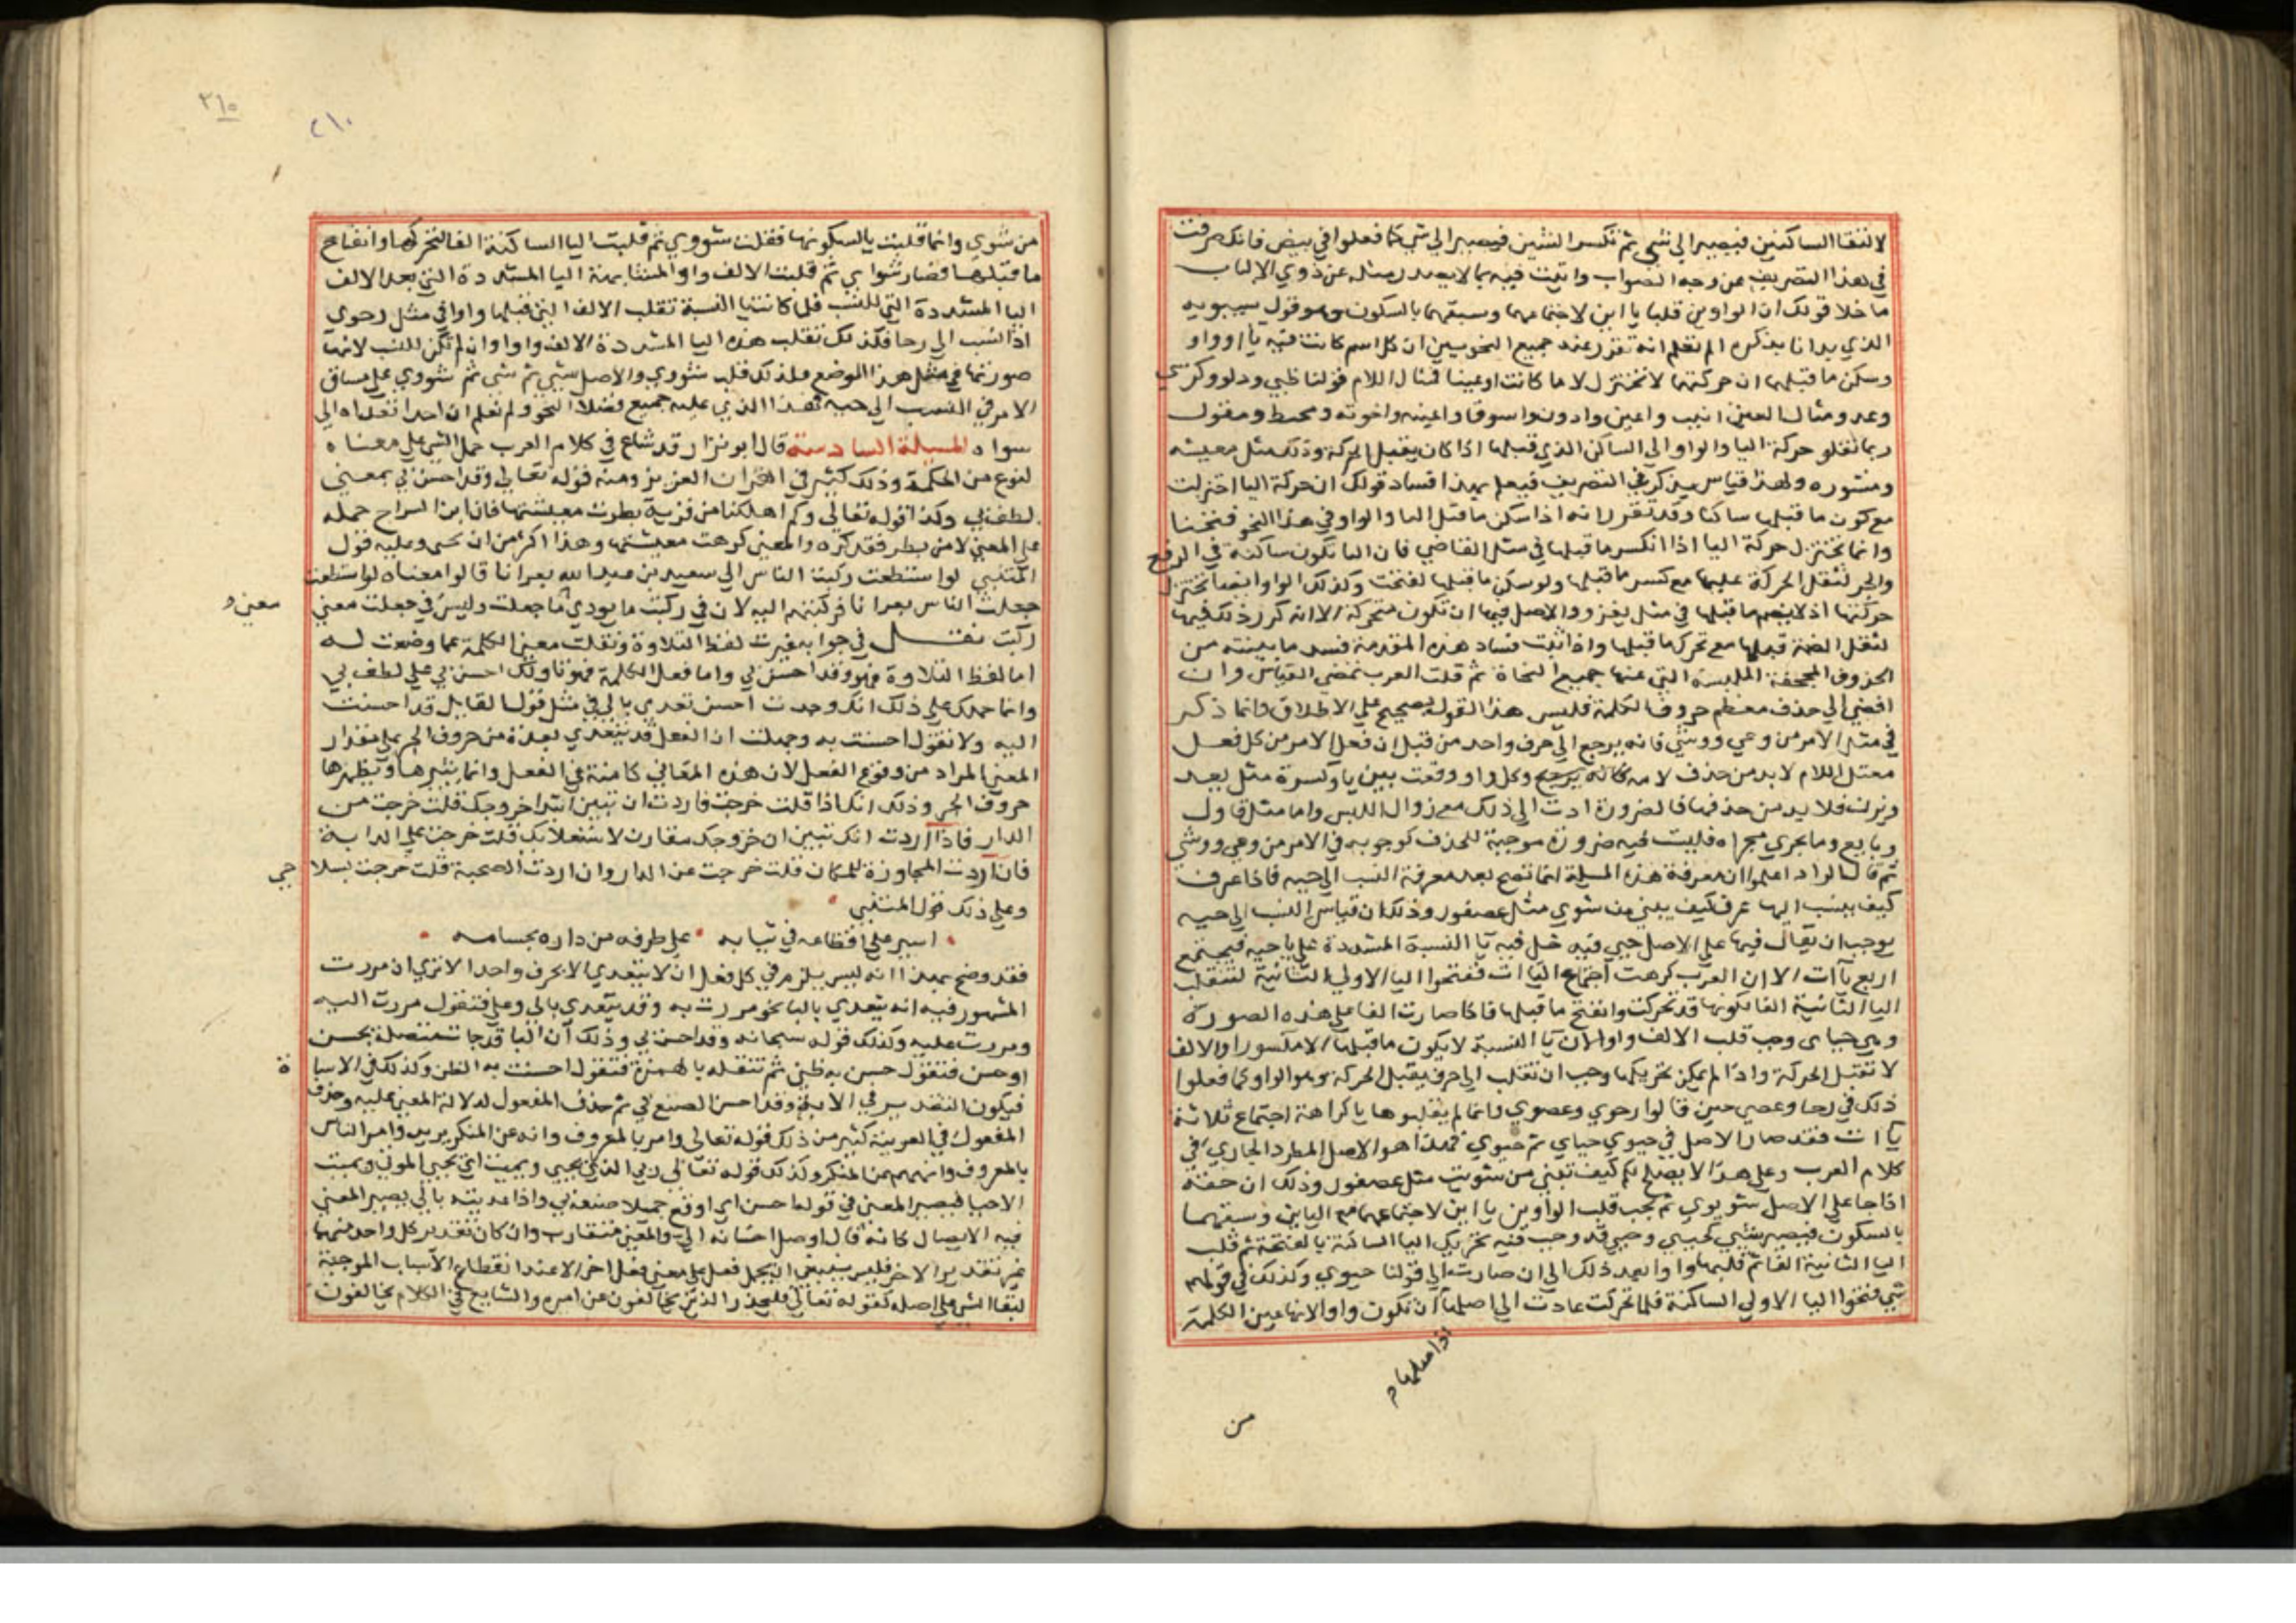 لالتقا الساكنين فيصير الى شي ثم تكسر الشين فيصير الى شي كما فعلوا في بيض فانك صرفت
في هذا التصريف عن وجه الصواب واتيت فيه بما لا يصدر مثله عن ذوي الالباب
ما خلا قولك ان الواوين قلبا ياين لاجتماعهما وسبقهما بالسكون وهو قول سيبويه
الذي بدانا بذكره الم تعلم انه تقرر عند جميع النحويين ان كل اسم كانت فيه يا او واو
وسكن ما قبلها ان حركتها لا تختزل لاما كانت او عينا فمثال اللام قولنا ظبي ودلو وكرسي
وعدو ومثال العين انيب واعين وادون واسوق واعينه واخونه ومخيط ومقول
ربما نقلو حركة اليا والواو الى الساكن الذي قبلها اذا كان يقبل الحركة وذلك مثل معيشه
ومشوره ولهذا قياس يذكر في التصريف فيعلم بهذا فساد قولك ان حركة اليا اختزلت
مع كون ما قبلها ساكنا وقد تقرر انه اذا سكن ما قبل اليا والواو في هذا النحو صحتا
وانما تختزل حركة اليا اذا انكسر ما قبلها في مثل القاضي فان اليا تكون ساكنة في الرفع
والجر لثقل الحركة عليها مع كسر ما قبلها ولو سكن ما قبلها لصحت وكذلك الواو ايضا تختزل
حركتها اذ لا يضم ما قبلها في مثل يغزو والاصل فيها ان تكون متحركة الا انه كره ذلك فيها
لثقل الضمة قبلها مع تحرك ما قبلها واذا ثبت فساد هذه المقدمة فسد ما بينته من
الحذوف المجحفة الملبسة التي عنها جميع النحاة ثم قلت العرب تمضي القياس وان
افضى الى حذف معظم حروف الكلمة فليس هذا القول بصحيح على الاطلاق وانما ذكر
في مثل الامر من وعي ووشي فانه يرجع الى حرف واحد من قبل ان فعل الامر من كل فعل
معتل اللام لا بد من حذف لامه وكل واو وقعت بين يا وكسرة مثل يعد
ويزن فلا بد من حذفها فالضرورة ادت الى ذلك مع زوال اللبس واما مثل قاول
وبايع وما يجري مجراه فليست فيه ضرورة موجبة للحذف كوجوبه في الامر من وعي ووشي
ثم قال الراد اعلموا ان معرفة هذه المسلة انما تصح بعد معرفة النسب الى حيه فاذا عرف
كيف ينسب اليها عرف كيف يبنى من شوي مثل عصفور وذلك ان قياس النسب الى حيه
يوجب ان يقال فيها على الاصل حيي فيه دخل فيه يا النسبة المشددة على يا حيه فيجتمع
اربع يآات الا ان العرب كرهت اجتماع اليآات ففتحوا اليا الاولى الثانية لتنقلب
اليا الثانية الفا لكونها قد تحركت وانفتح ما قبلها فلما صارت الفا على هذه الصورة
وهي حياي وجب قلب الالف واوا لان يا النسبة لا يكون ما قبلها الا مكسورا والالف
لا تقبل الحركة واذا لم يمكن تحريكها وجب ان تقلب الى حرف يقبل الحركة وهو الواو كما فعلوا
ذلك في رحا وعصى حين قالوا رحوي وعصوي وانما لم يقلبوها يا كراهة اجتماع ثلاثة
يآات فقد صار الاصل في حيوي حياي ثم حيوي فهذا هو الاصل المطرد الجاري في
كلام العرب وعلى هذا لا يصلح لكم كيف تبني من شويت مثل عصفور وذلك ان حقه
اذا جا على الاصل شويوي ثم يجب قلب الواوين ياين لاجتماعهما مع الياين وسبقهما
بالسكون فيصير شيي كحيي وحيي قد وجب فيه تحريك اليا الساكنة بالفتحة ثم قلب
اليا الثانية الفا ثم قلبها واوا بعد ذلك الى ان صارت الى قولنا حيوي وكذلك في قولهم
شيي فتحوا اليا الاولى الساكنة فلما تحركت عادت الى اصلها ان تكون واوا لانها عين الكلمة
اذا اصلها م
من
٣١٥
٢١٠
من شوي وانما قلبت يا لسكونها فقلت شووي ثم قلبت اليا الساكنة الفا لتحركها وانفتاح
ما قبلها فصار شواي ثم قلبت الالف واوا لمشابهة اليا المشددة التي بعد الالف
اليا المشددة التي للنسب فلما كانت يا النسبة تقلب الالف التي قبلها واوا في مثل رحوي
اذا نسب الى رحا فكذلك تقلب هذه اليا المشددة الالف واوا وان لم تكن للنسب لانها
صورتها في مثل هذا الموضع فلذلك قلب شووي والاصل شيي ثم شي ثم شووي على مساق
الامر في النسب الى حيه فهذا الذي عليه جميع فضلا النحو ولم نعلم ان احدا تعداه الى
سواه المسيلة السادسة قال ابو نزار قد شاع في كلام العرب حمل الشي على معناه
لنوع من الحكمة وذلك كثير في القران العزيز ومنه قوله تعالى وقد احسن بي بمعنى
لطف بي وكذا قوله تعالى وكم اهلكنا من قرية بطرت معيشتها فان ابن السراج حمله
على المعنى لان من بطر فقد كره والمعنى كرهت معيشتها وهذا اكثر من ان يحصى وعليه قول
المتنبي لو استطعت ركبت الناس الى سعيد بن عبد الله بعرانا قالوا معناه لو استطعت
جعلت الناس بعرانا فركبتهم اليه لان في ركبت ما يودي ما جعلت وليس في جعلت معنى
معنى و
ركبت نقل في جوابه غيرت لفظ التلاوة ونقلت معنى الكلمة عما وضعت له
اما لفظ التلاوة فهو وقد احسن بي واما فعل الكلمة فهو تاولك احسن بي على لطف بي
وانما حملك على ذلك انك وجدت احسن تعدي بالى في مثل قول القايل قد احسنت
اليه ولا تقول احسنت به وجهلت ان الفعل قد يتعدى بعدة من حروف الجر على مقدار
المعنى المراد من وقوع الفعل لان هذه المعاني كامنة في الفعل وانما يثيرها ويظهرها
حروف الجر وذلك انك اذا قلت خرجت فاردت ان تبين ابتدا خروجك قلت خرجت من
الدار فاذا اردت انك تبين ان خروجك مقارن لاستعلايك قلت خرجت على الدابة
فان اردت المجاوزة للمكان قلت خرجت عن الدار وان اردت الصحبة قلت خرجت بسلا
حي
وعلى ذلك قول المتنبي
اسير على اقطاعه في ثيابه على طرفه من داره بحسامه
فقد وضح بهذا انه ليس يلزم في كل فعل ان لا يتعدى الا بحرف واحد الا ترى ان مررت
المشهور فيه انه يتعدى بالبا نحو مررت به وقد يتعدى بالى وعلى فتقول مررت اليه
ومررت عليه وكذلك قوله سبحانه وقد احسن بي وذلك ان البا قد جات متصلة بحسن
او حسن فتقول حسن به ظني ثم تنقله بالهمزة فتقول احسنت به الظن وكذلك في الاسا
ة
فيكون التقدير في الاية وقد احسن الصنع بي ثم حذف المفعول لدلالة المعنى عليه وحذف
المفعول في العربية كثير من ذلك قوله تعالى وامر بالمعروف وانه عن المنكر يريد وامر الناس
بالمعروف وانههم عن المنكر وكذلك قوله تعالى ربي الذي يحيي ويميت اي يحيي الموتى ويميت
الاحيا فيصير المعنى في قولنا حسن اي اوقع جميلا صنعه بي واذا عديته بالى يصير المعنى
فيه الايصال كانه قال اوصل احسانه الي والمعنى متقارب وان كان تقدير كل واحد منهما
غير تقدير الاخر فليس ينبغي ان يحمل فعل على معنى فعل اخر الا عند انقطاع الاسباب الموجبة
لبقا الشي على اصله كقوله تعالى فليحذر الذين يخالفون عن امره والشايع في الكلام يخالفون